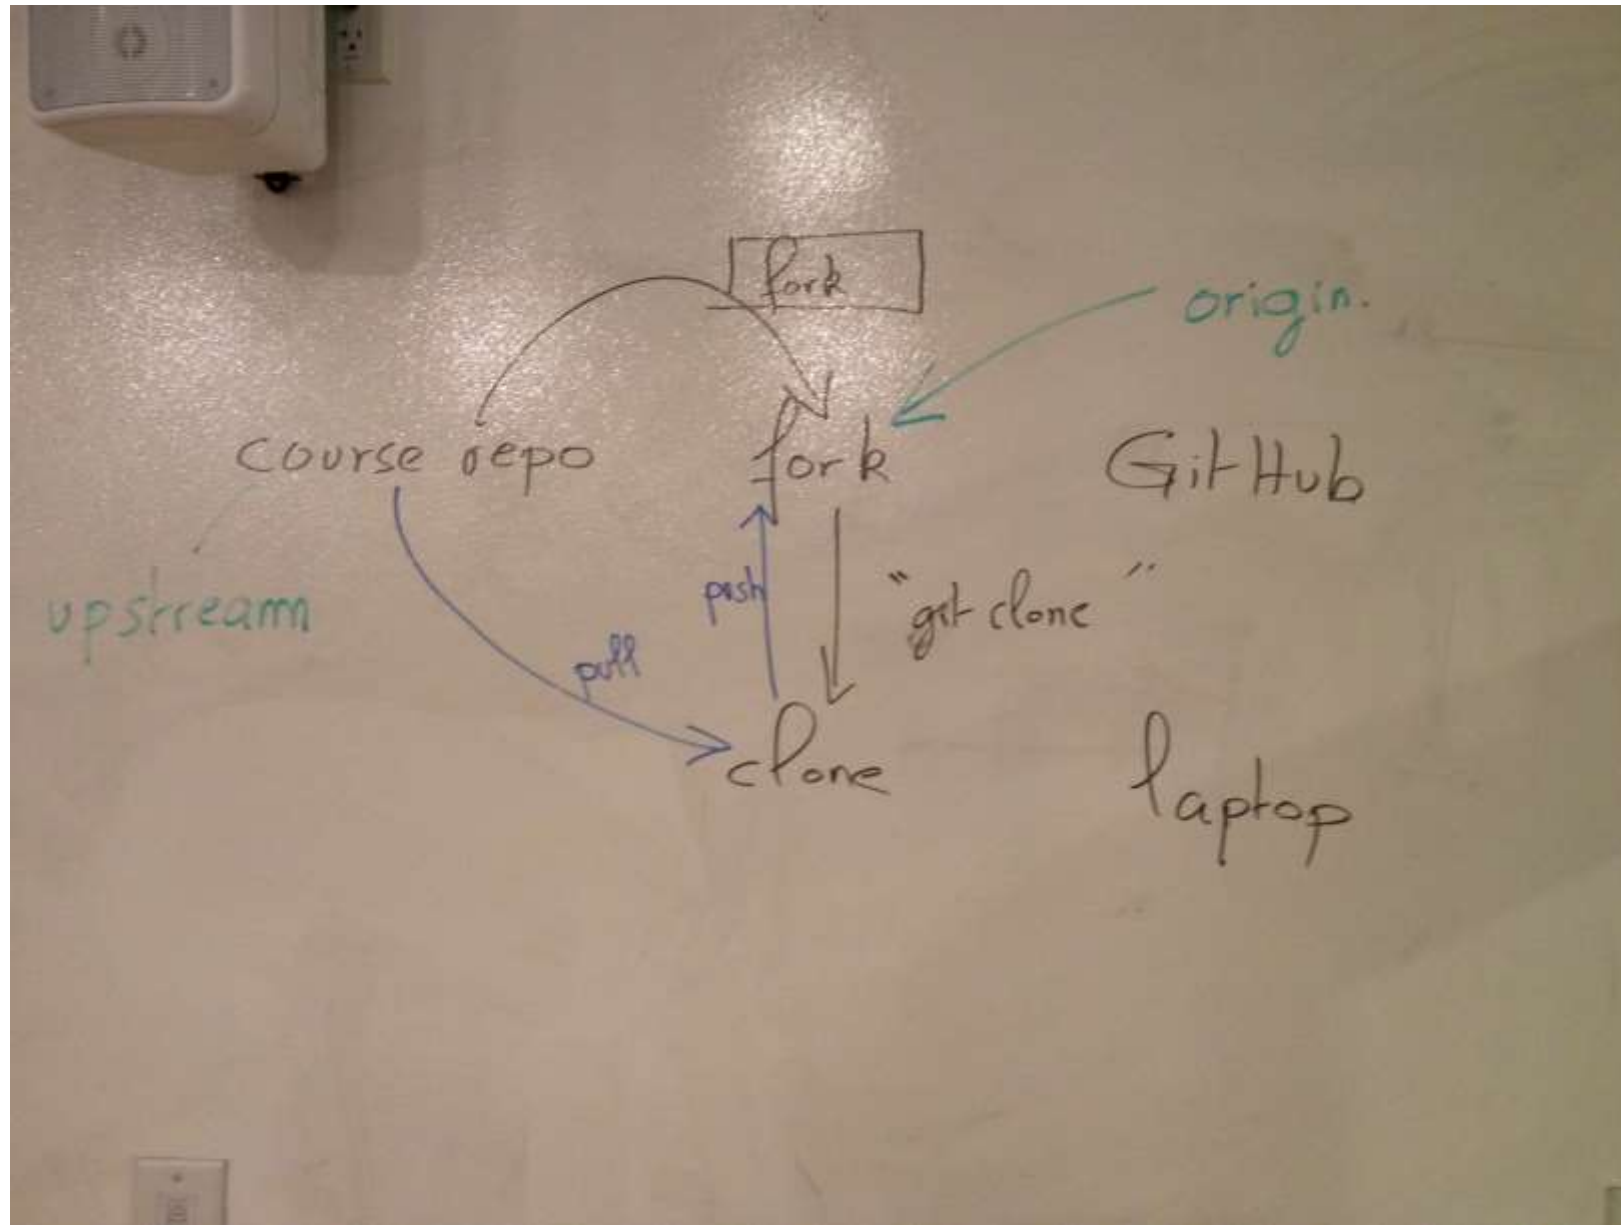 fork
origin.
course repo
fork
GitHub
upstream
push
"git clone"
pull
clone
laptop